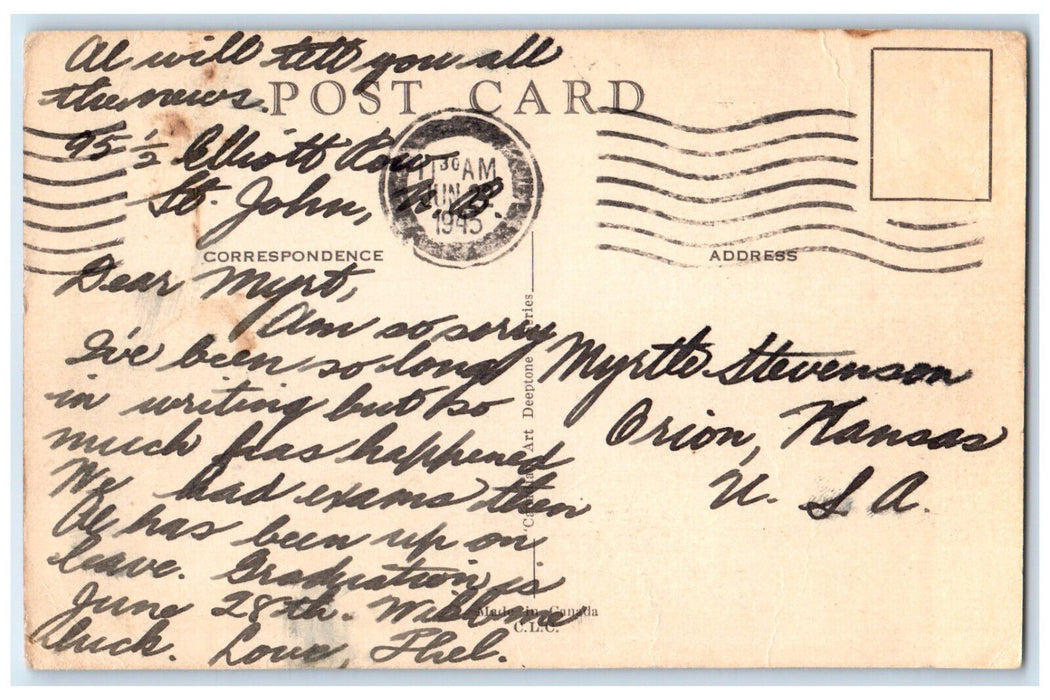 Al will tell you all
the news.
POST CARD
95 1/2 Elliott Row
St. John, N.B.
11 30 AM
JUN 23
1945
CORRESPONDENCE
ADDRESS
Dear Myrt,
Am so sorry
I've been so long
in writing but so
much has happened
We had exams then
Al has been up on
leave. Graduation is
June 28th. Wish me
luck. Love, Thel.
Myrtle Stevenson
Orion, Kansas
U. S A.
Art Deeptone Series
Made in Canada
C.L.C.